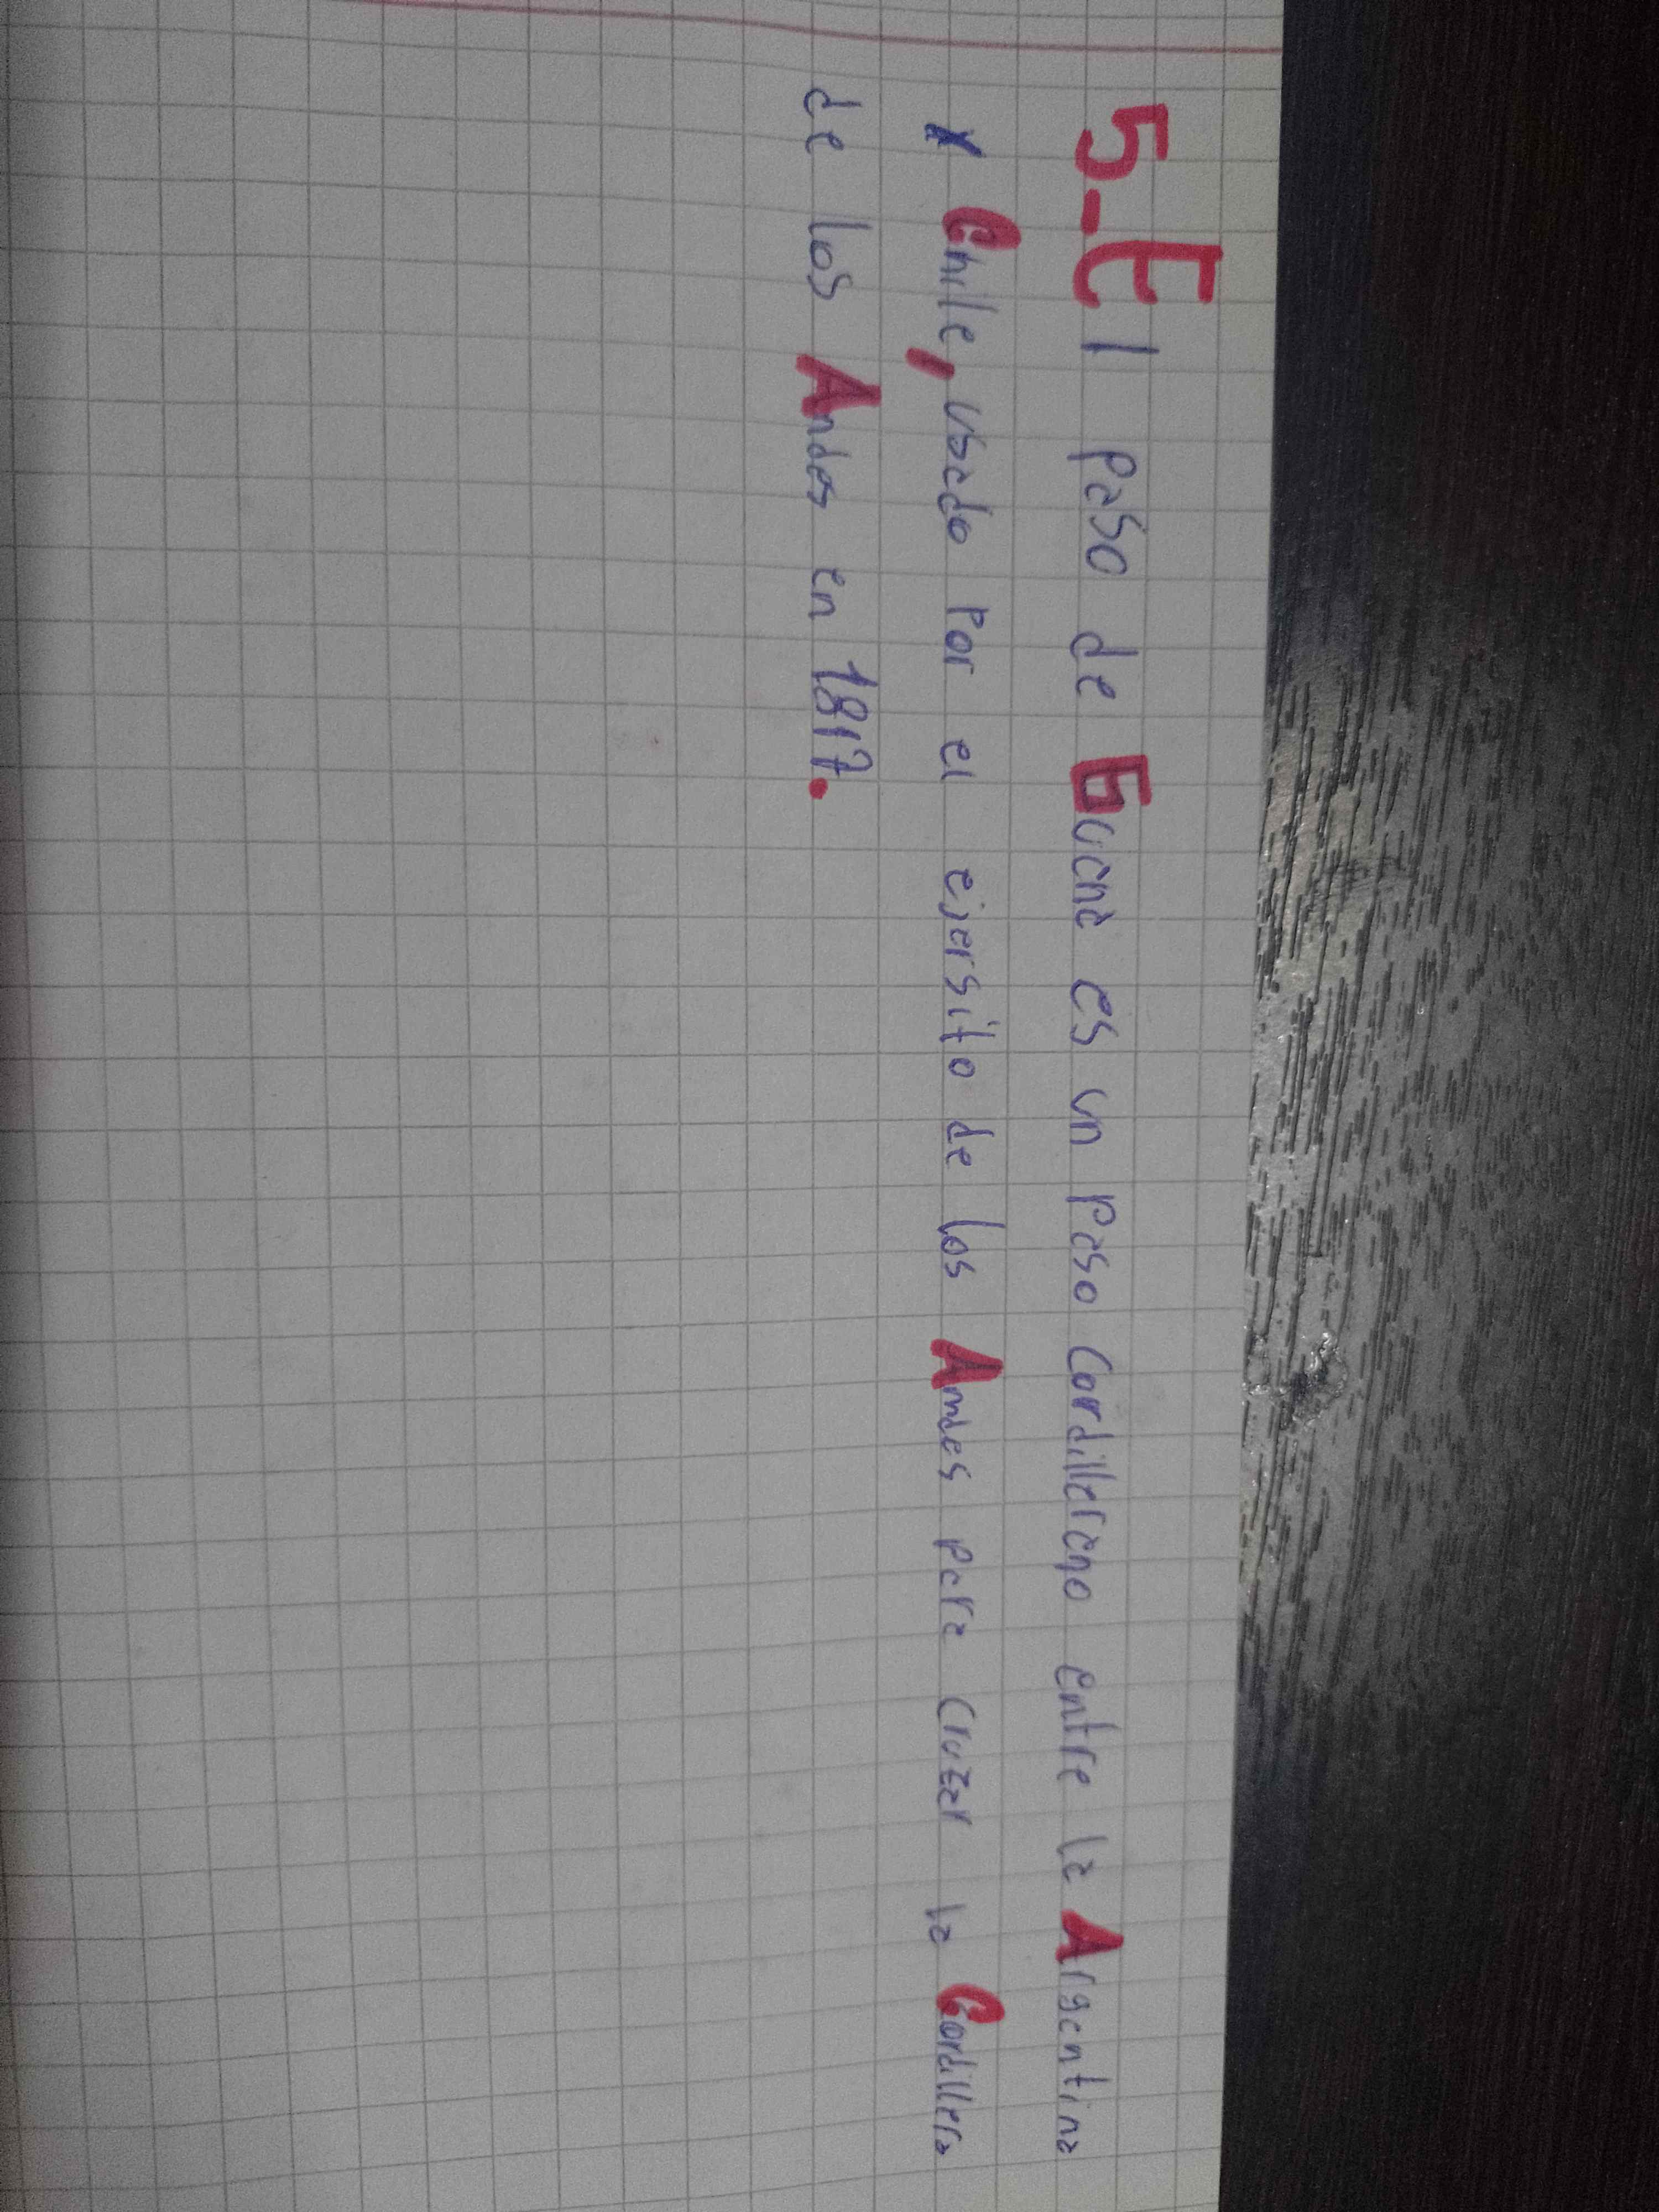 5-El paso de Guana es un paso cordillerano entre la Argentina
y Chile, usado por el ejersito de los Andes para cruzar la Cordillera
de los Andes en 1817.